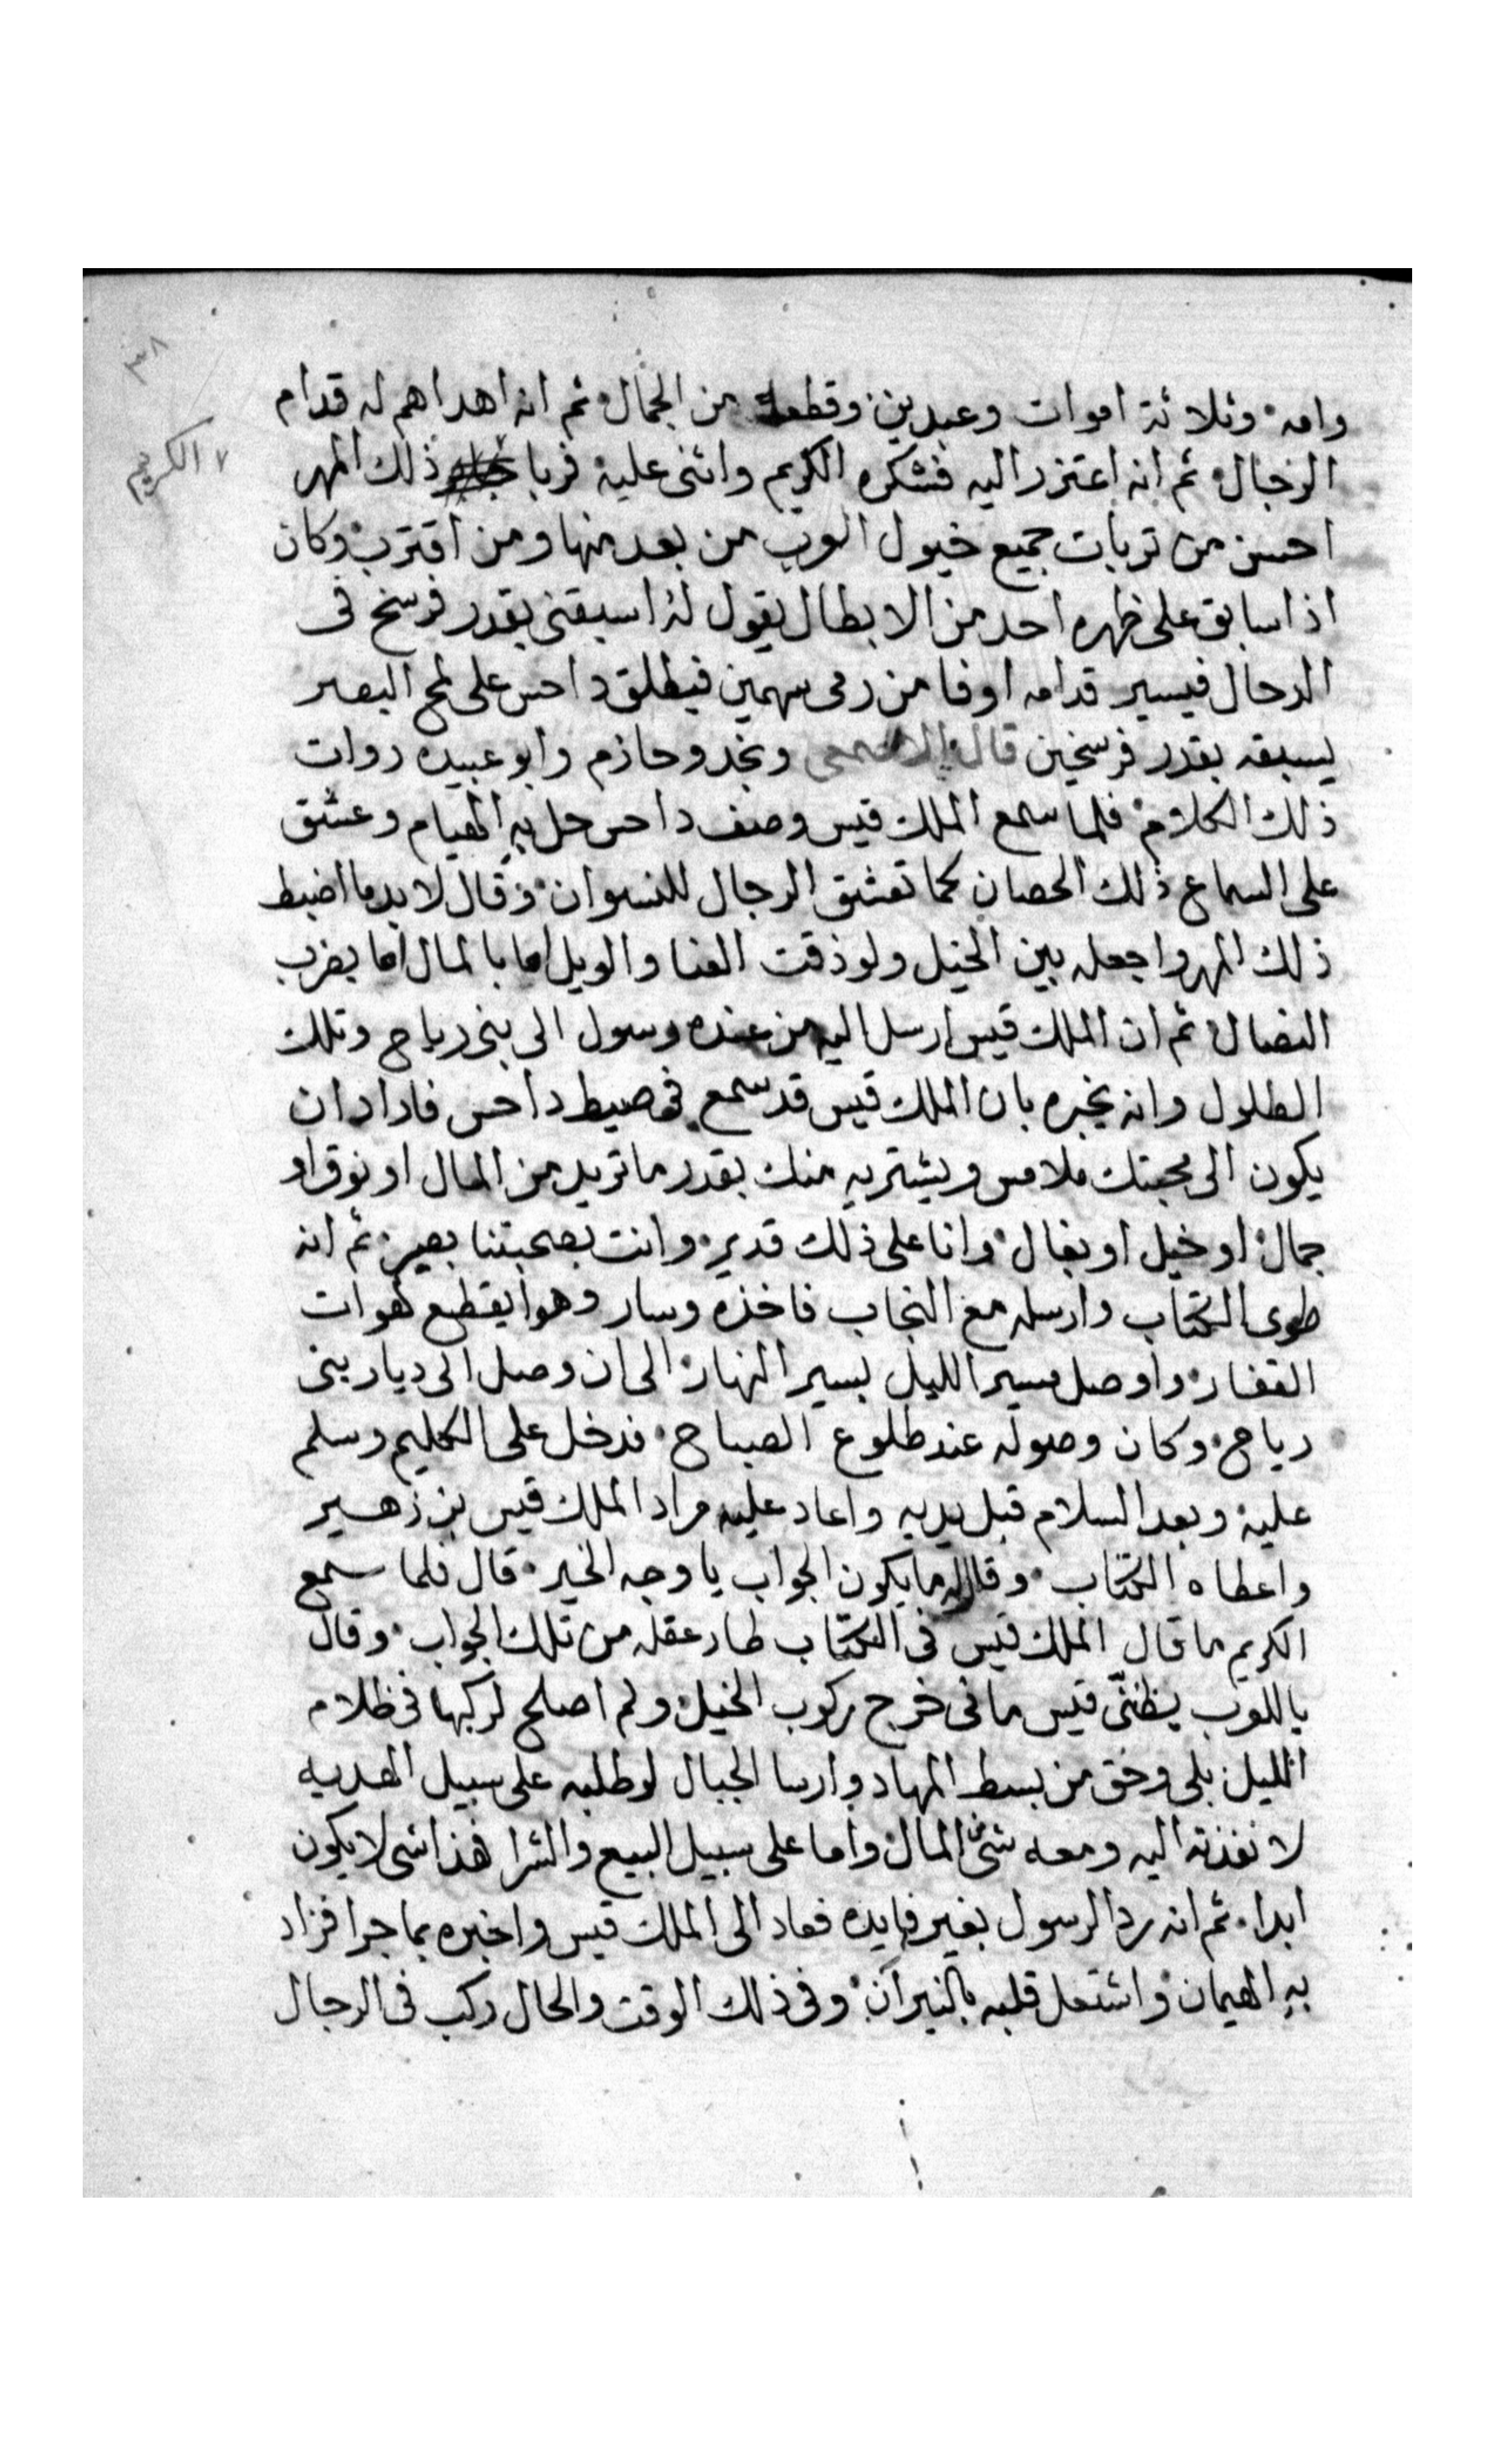 ٣٨
وامه وثلاثة اموات وعبدين وقطعة من الجمال ثم انه اهداهم له قدام
الرجال ثم انه اعتزر اليه فشكره الكريم واثنى عليه فربا ذلك المهر
الكريم
احسن من تربات جميع خيول العرب من بعد منها ومن اقترب وكان
اذا سابق على ظهره احد من الابطال يقول له اسبقنى بقدر فرسخ فى
الرحال فيسير قدامه اوفا من رمى سهمين فيطلق داحس على لمح البصر
يسبقه بقدر فرسخين قال الاصمعى ونجد وحازم وابو عبيده روات
ذلك الكلام فلما سمع الملك قيس وصف داحس حل به الهيام وعشق
على السماع ذلك الحصان كما تعشق الرجال للنسوان وقال لا بد ما اضبط
ذلك المهر واجعله بين الخيل ولو ذقت العنا والويل اما بالمال اما بضرب
النصال ثم ان الملك قيس ارسل اليه من عنده رسول الى بنى رياح وتلك
الطلول وانه يخبره بان الملك قيس قد سمع فى صيط داحس فاراد ان
يكون الى محبتك ملامس ويشتريه منك بقدر ما تريد من المال او نوق او
جمال او خيل او بغال وانا على ذلك قدير وانت بصحبتنا بصير ثم انه
طوى الكتاب وارسله مع النجاب فاخذه وسار وهوا يقطع لهوات
القفار واوصل مسير الليل بسير النهار الى ان وصل الى ديار بنى
رياح وكان وصوله عند طلوع الصباح فدخل على الكليم وسلم
عليه وبعد السلام قبل يديه واعاد عليه مراد الملك قيس بن زهير
واعطاه الكتاب وقال له ما يكون الجواب يا وجه الخير قال فلما سمع
الكريم ما قال الملك قيس فى الكتاب طار عقله من تلك الجواب وقال
ياللعرب يظننى قيس مانى خرج ركوب الخيل ولم اصلح لركبها فى ظلام
الليل بلى وحق من بسط المهاد وارسا الجبال لو طلبه على سبيل الهديه
لا نفذته اليه ومعه شئ من المال واما على سبيل البيع والشرا فهذا شى لا يكون
ابدا ثم انه رد الرسول بغير فايده فعاد الى الملك قيس واخبره بما جرا فزاد
به الهيمان واشتعل قلبه بالنيران وفى ذلك الوقت والحال ركب فى الرجال